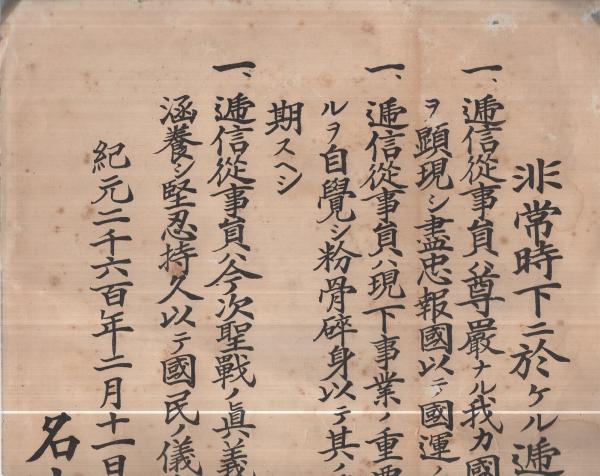 非常時下ニ於ケル逓
一、逓信從事員ハ尊嚴ナル我カ國
ヲ顕現シ盡忠報國以テ國運ノ
一、逓信從事員ハ現下事業ノ重要
ルヲ自覺シ粉骨碎身以テ其ノ
期スヘシ
一、逓信從事員ハ今次聖戰ノ眞義
涵養シ堅忍持久以テ國民ノ儀
紀元二千六百年二月十一日
名